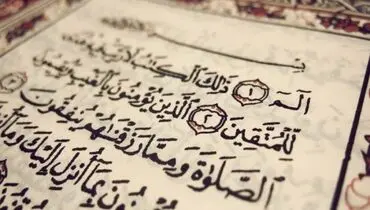 الٓمٓ ۝١ ذَٰلِكَ ٱلْكِتَٰبُ لَا رَيْبَ فِيهِ
لِّلْمُتَّقِينَ ۝٢ ٱلَّذِينَ يُؤْمِنُونَ بِٱلْغَيْبِ وَيُقِيمُونَ
ٱلصَّلَوٰةَ وَمِمَّا رَزَقْنَٰهُمْ يُنفِقُونَ
بِمَآ أُنزِلَ إِلَيْكَ وَمَآ